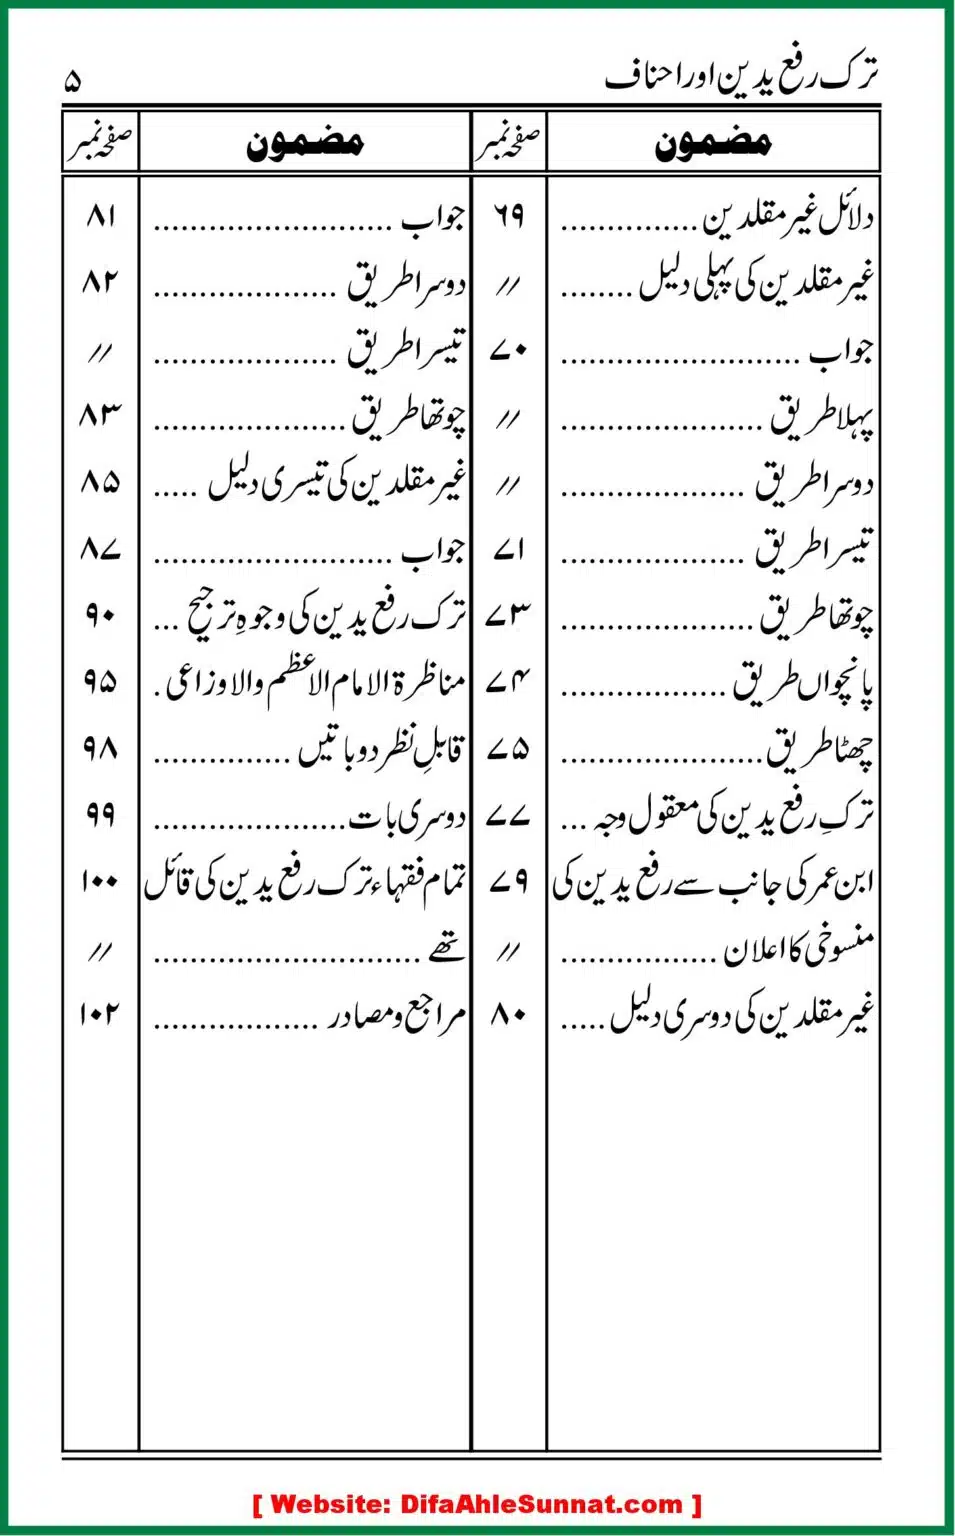 ترک رفع یدین اور احناف ۵
مضمون صفحہ نمبر مضمون صفحہ نمبر
دلائل غیر مقلدین............... ۶۹
غیر مقلدین کی پہلی دلیل ........ //
جواب .......................... ۷۰
پہلا طریق ...................... //
دوسرا طریق .................... //
تیسرا طریق .................... ۷۱
چوتھا طریق ..................... ۷۳
پانچواں طریق .................. ۷۴
چھٹا طریق...................... ۷۵
ترکِ رفع یدین کی معقول وجہ ... ۷۷
ابن عمر کی جانب سے رفع یدین کی ۷۹
منسوخی کا اعلان ................. //
غیر مقلدین کی دوسری دلیل ..... ۸۰
جواب .......................... ۸۱
دوسرا طریق .................... ۸۲
تیسرا طریق .................... //
چوتھا طریق ..................... ۸۳
غیر مقلدین کی تیسری دلیل ..... ۸۵
جواب .......................... ۸۷
ترک رفع یدین کی وجوہِ ترجیح ... ۹۰
مناظرۃ الامام الاعظم والاوزاعی . ۹۵
قابلِ نظر دو باتیں ............... ۹۸
دوسری بات..................... ۹۹
تمام فقہاء ترک رفع یدین کی قائل ۱۰۰
تھے ............................. //
مراجع و مصادر .................. ۱۰۲
[ Website: DifaAhleSunnat.com ]